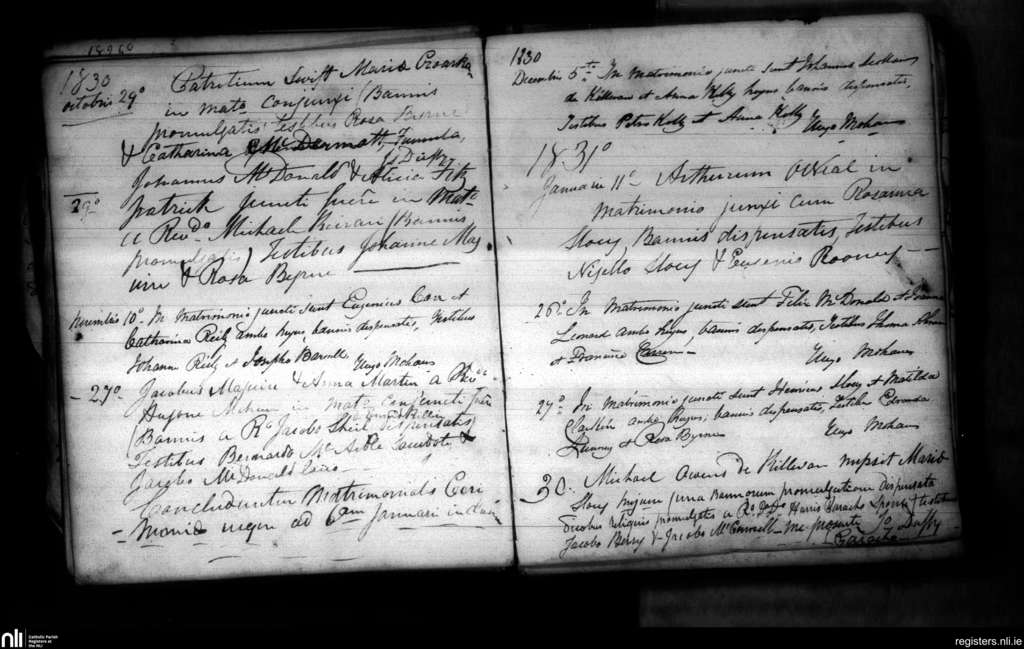 1830
octobris 29º Patritium Swift Maria
in matº conjunxi (Bannis
promulgatis) testibus Rosa Byrne
& Catharina McDermott, famula,
J. Duffy
29º Johannus McDonald & Alicia Fitz
patrick juncti fuere in Matº
a Revdo. Michael (Bannis
promulgatis) Testibus Johanne Mag
& Rosa Byrne
Novembris 10º In matrimonio juncti sunt Eugenius Carr et
Catharina Reily ambo hujus, bannis dispensatis, Testibus
Johanne Reily et Josepho Barnell Hugo Mohan
27º Jacobus Maguire & Anna Martin a Rdo
Hugone Mohan in matº conjuncti
(Bannis a Rº Jacobo Sheil dispensatis)
Testibus Bernardo McArdle &
Jacobo McDonald
Concluduntur Matrimonialis Ceri
monia usque ad 6am Januarii
1830
Decembris 5to In matrimonio juncti sunt Johannus
de Killevan et Anna Kelly hujus bannis dispensatis,
Testibus Petro Kelly et Anna Kelly Hugo Mohan
1831º
Januarii 11º Arthurum O'Nial in
matrimonio junxi cum Rosanna
Slowy, Bannis dispensatis, Testibus
Nigello Slowy & Eugenio Rooney
26º In matrimonio juncti sunt Felix McDonald et
Leonard ambo hujus, bannis dispensatis, Testibus Thoma
et Hugo Mohan
27º In matrimonio juncti sunt Henricus Slowy et Matilda
Clarkin ambo hujus, bannis dispensatis, Testibus
et Rosa Byrne Hugo Mohan
30. Michael Owens de Killevan nupsit Maria
Slowy hujus una Bannorum promulgatione dispensata
duobus reliquis promulgatis a Rº testibus
Jacobo Berry & Jacobo McConnell me presente Jo Duffy
nli
Catholic Parish
Registers at
the NLI
registers.nli.ie